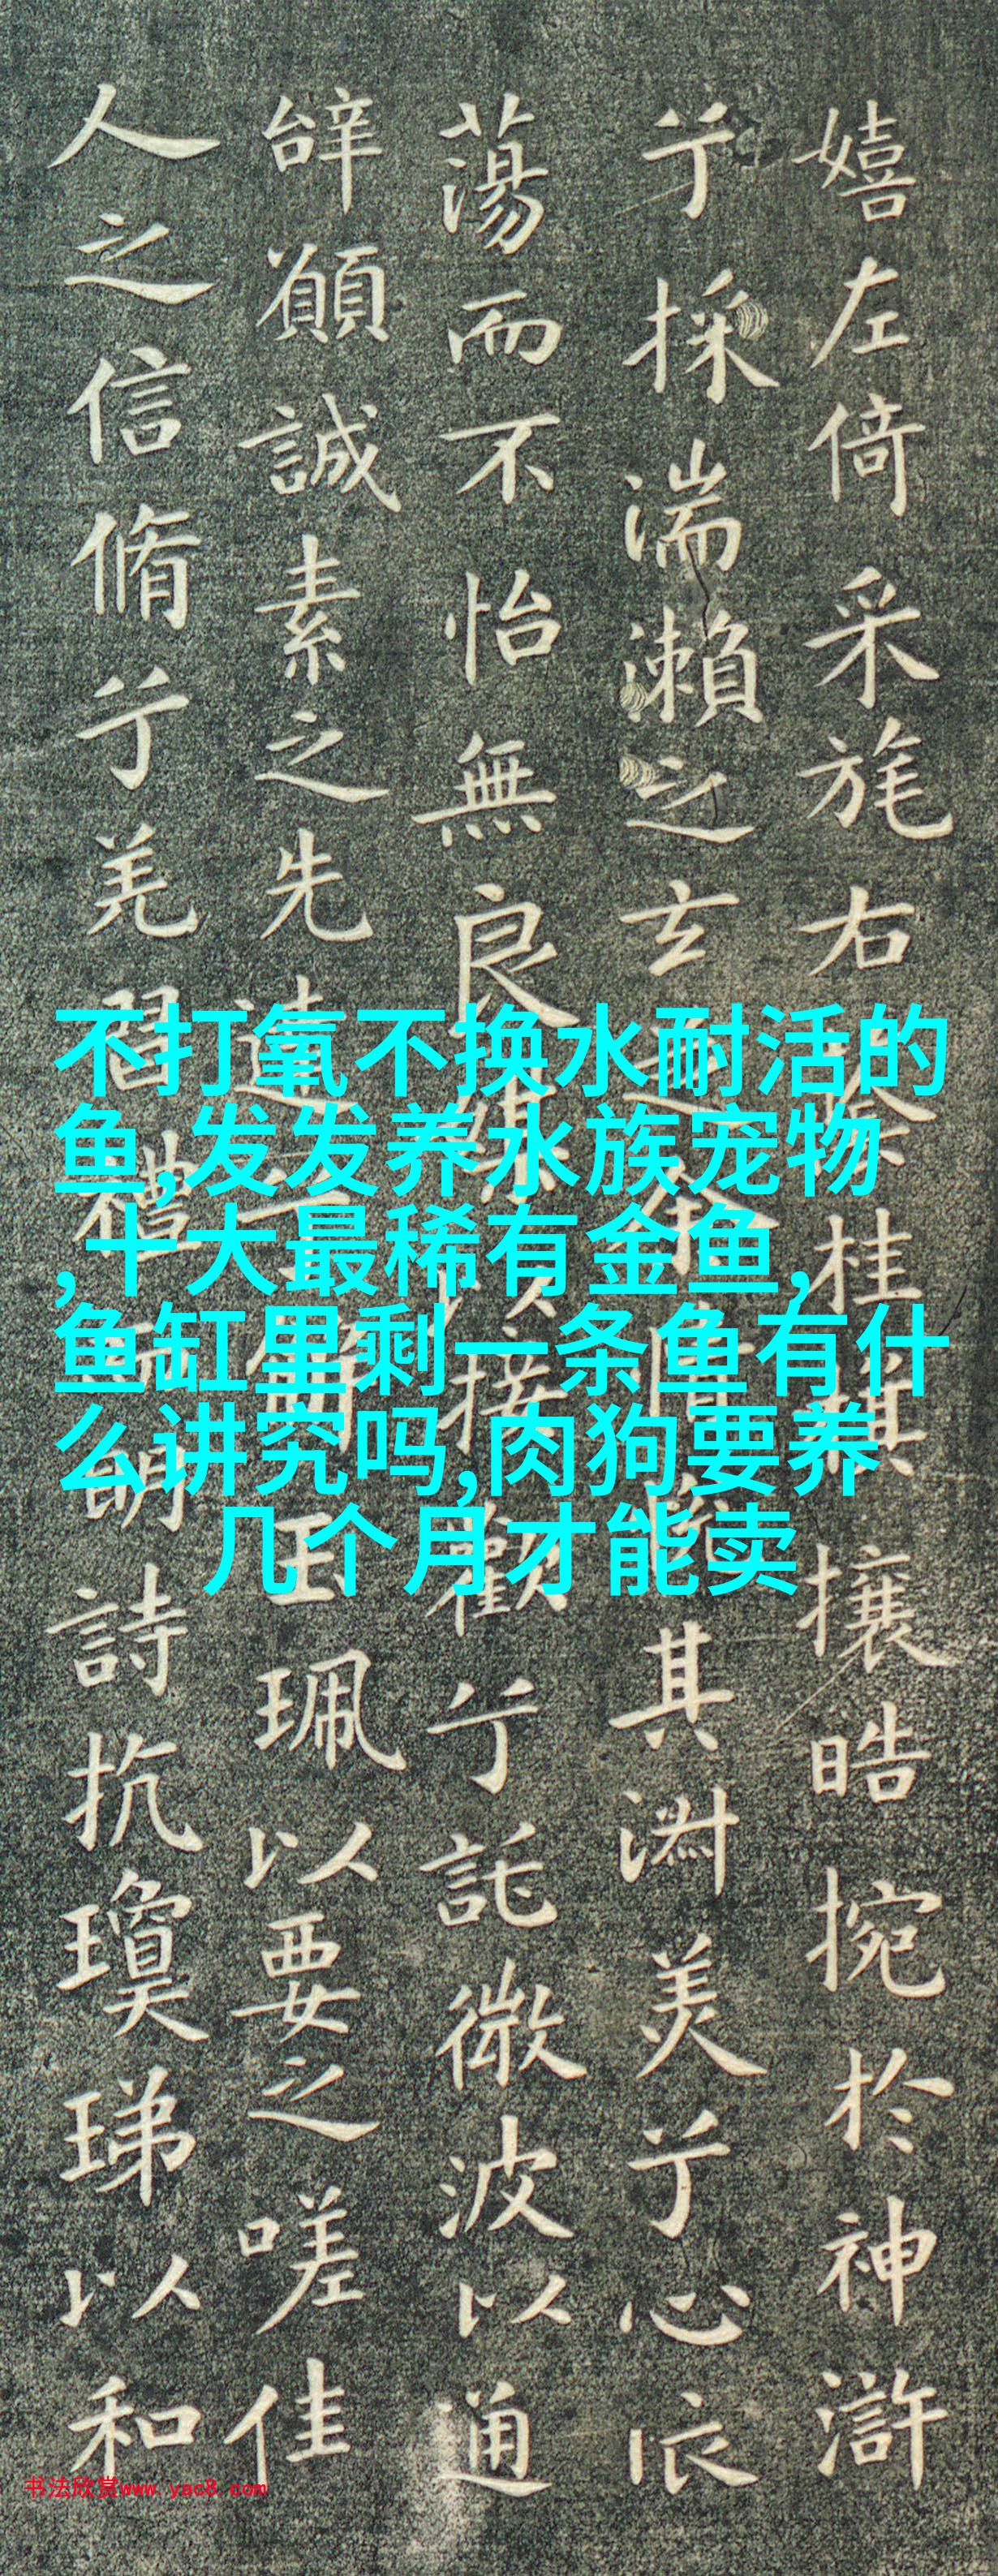 嬉左倚采旄右桂旗攘皓捥於神滸
兮採湍瀨之玄其淵美兮心
蕩而不怡無良以接歡兮託微波以通
辭願誠素之先達玉珮以要之嗟佳
人之信脩兮羌習禮明詩抗瓊珶以和
不打氧不换水耐活的
鱼,发发养水族宠物
,十大最稀有金鱼,
鱼缸里剩一条鱼有什
么讲究吗,肉狗要养
几个月才能卖
书法欣赏www.yac8.com